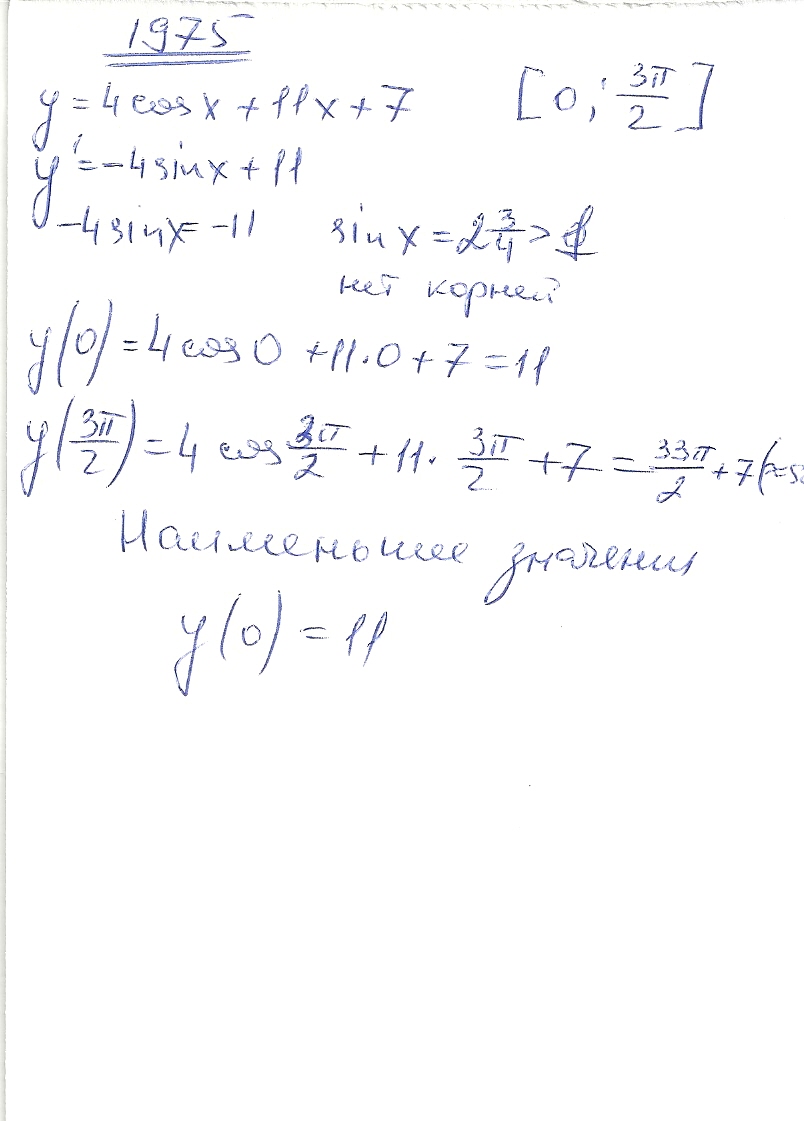 1975
y = 4 cos x + 11x + 7 [0; 3π/2]
y' = -4 sin x + 11
-4 sin x = -11 sin x = 2 3/4 > 1
нет корней
y(0) = 4 cos 0 + 11·0 + 7 = 11
y(3π/2) = 4 cos 3π/2 + 11· 3π/2 + 7 = 33π/2 + 7 (≈5
Наименьшее значения
y(0) = 11